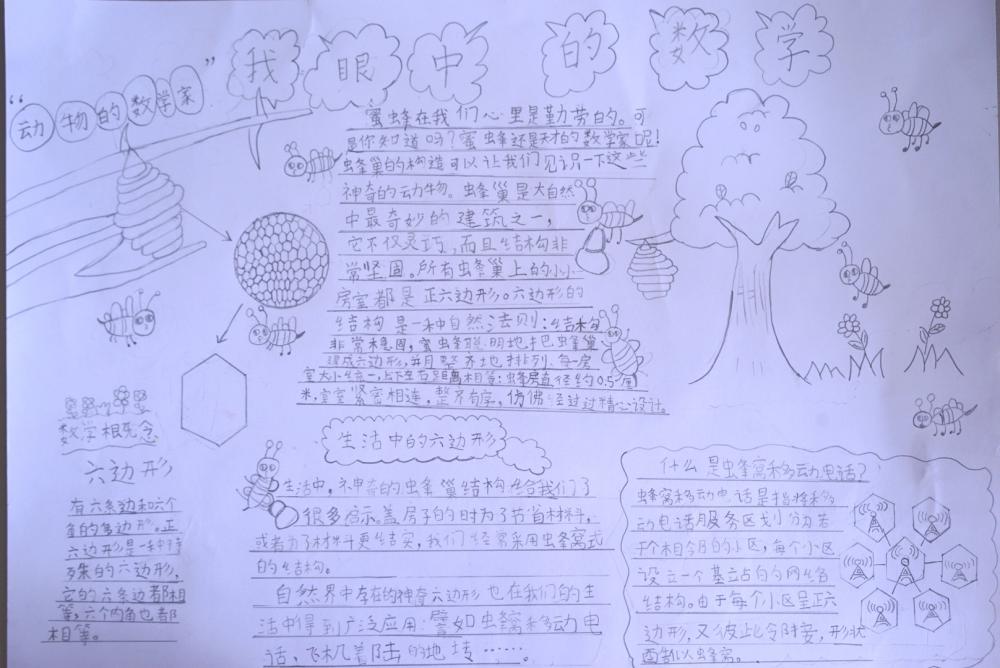 我眼中的数学
“动物的数学家”
蜜蜂在我们心里是勤劳的。可
是你知道吗?蜜蜂还是天才的数学家呢!
蜂巢的构造可以让我们见识一下这些
神奇的动物。蜂巢是大自然
中最奇妙的建筑之一,
它不仅灵巧,而且结构非
常坚固。所有蜂巢上的小小
房室都是正六边形。六边形的
结构是一种自然法则:结构
非常稳固,蜜蜂聪明地把蜂巢
建成六边形,并且整齐地排列,每一房
室大小统一,上下左右距离相等;蜂房直径约0.5厘
米,室室紧密相连,整齐有序,仿佛经过过精心设计。
数学概念
六边形
有六条边和六个
角的多边形。正
六边形是一种特
殊的六边形,
它的六条边都相
等,六个内角也都
相等。
生活中的六边形
生活中,神奇的蜂巢结构给我们了
很多启示。盖房子的时为了节省材料,
或者为了材料更结实,我们经常采用蜂窝式
的结构。
自然界中存在的神奇六边形也在我们的生
活中得到广泛应用:譬如蜂窝移动电
话,飞机着陆的地坪……。
什么是蜂窝移动电话?
蜂窝移动电话是指将移
动电话服务区划分为若
干个相邻的小区,每个小区
设立一个基站的网络
结构。由于每个小区呈正六
边形,又彼此邻接,形状
酷似蜂窝。